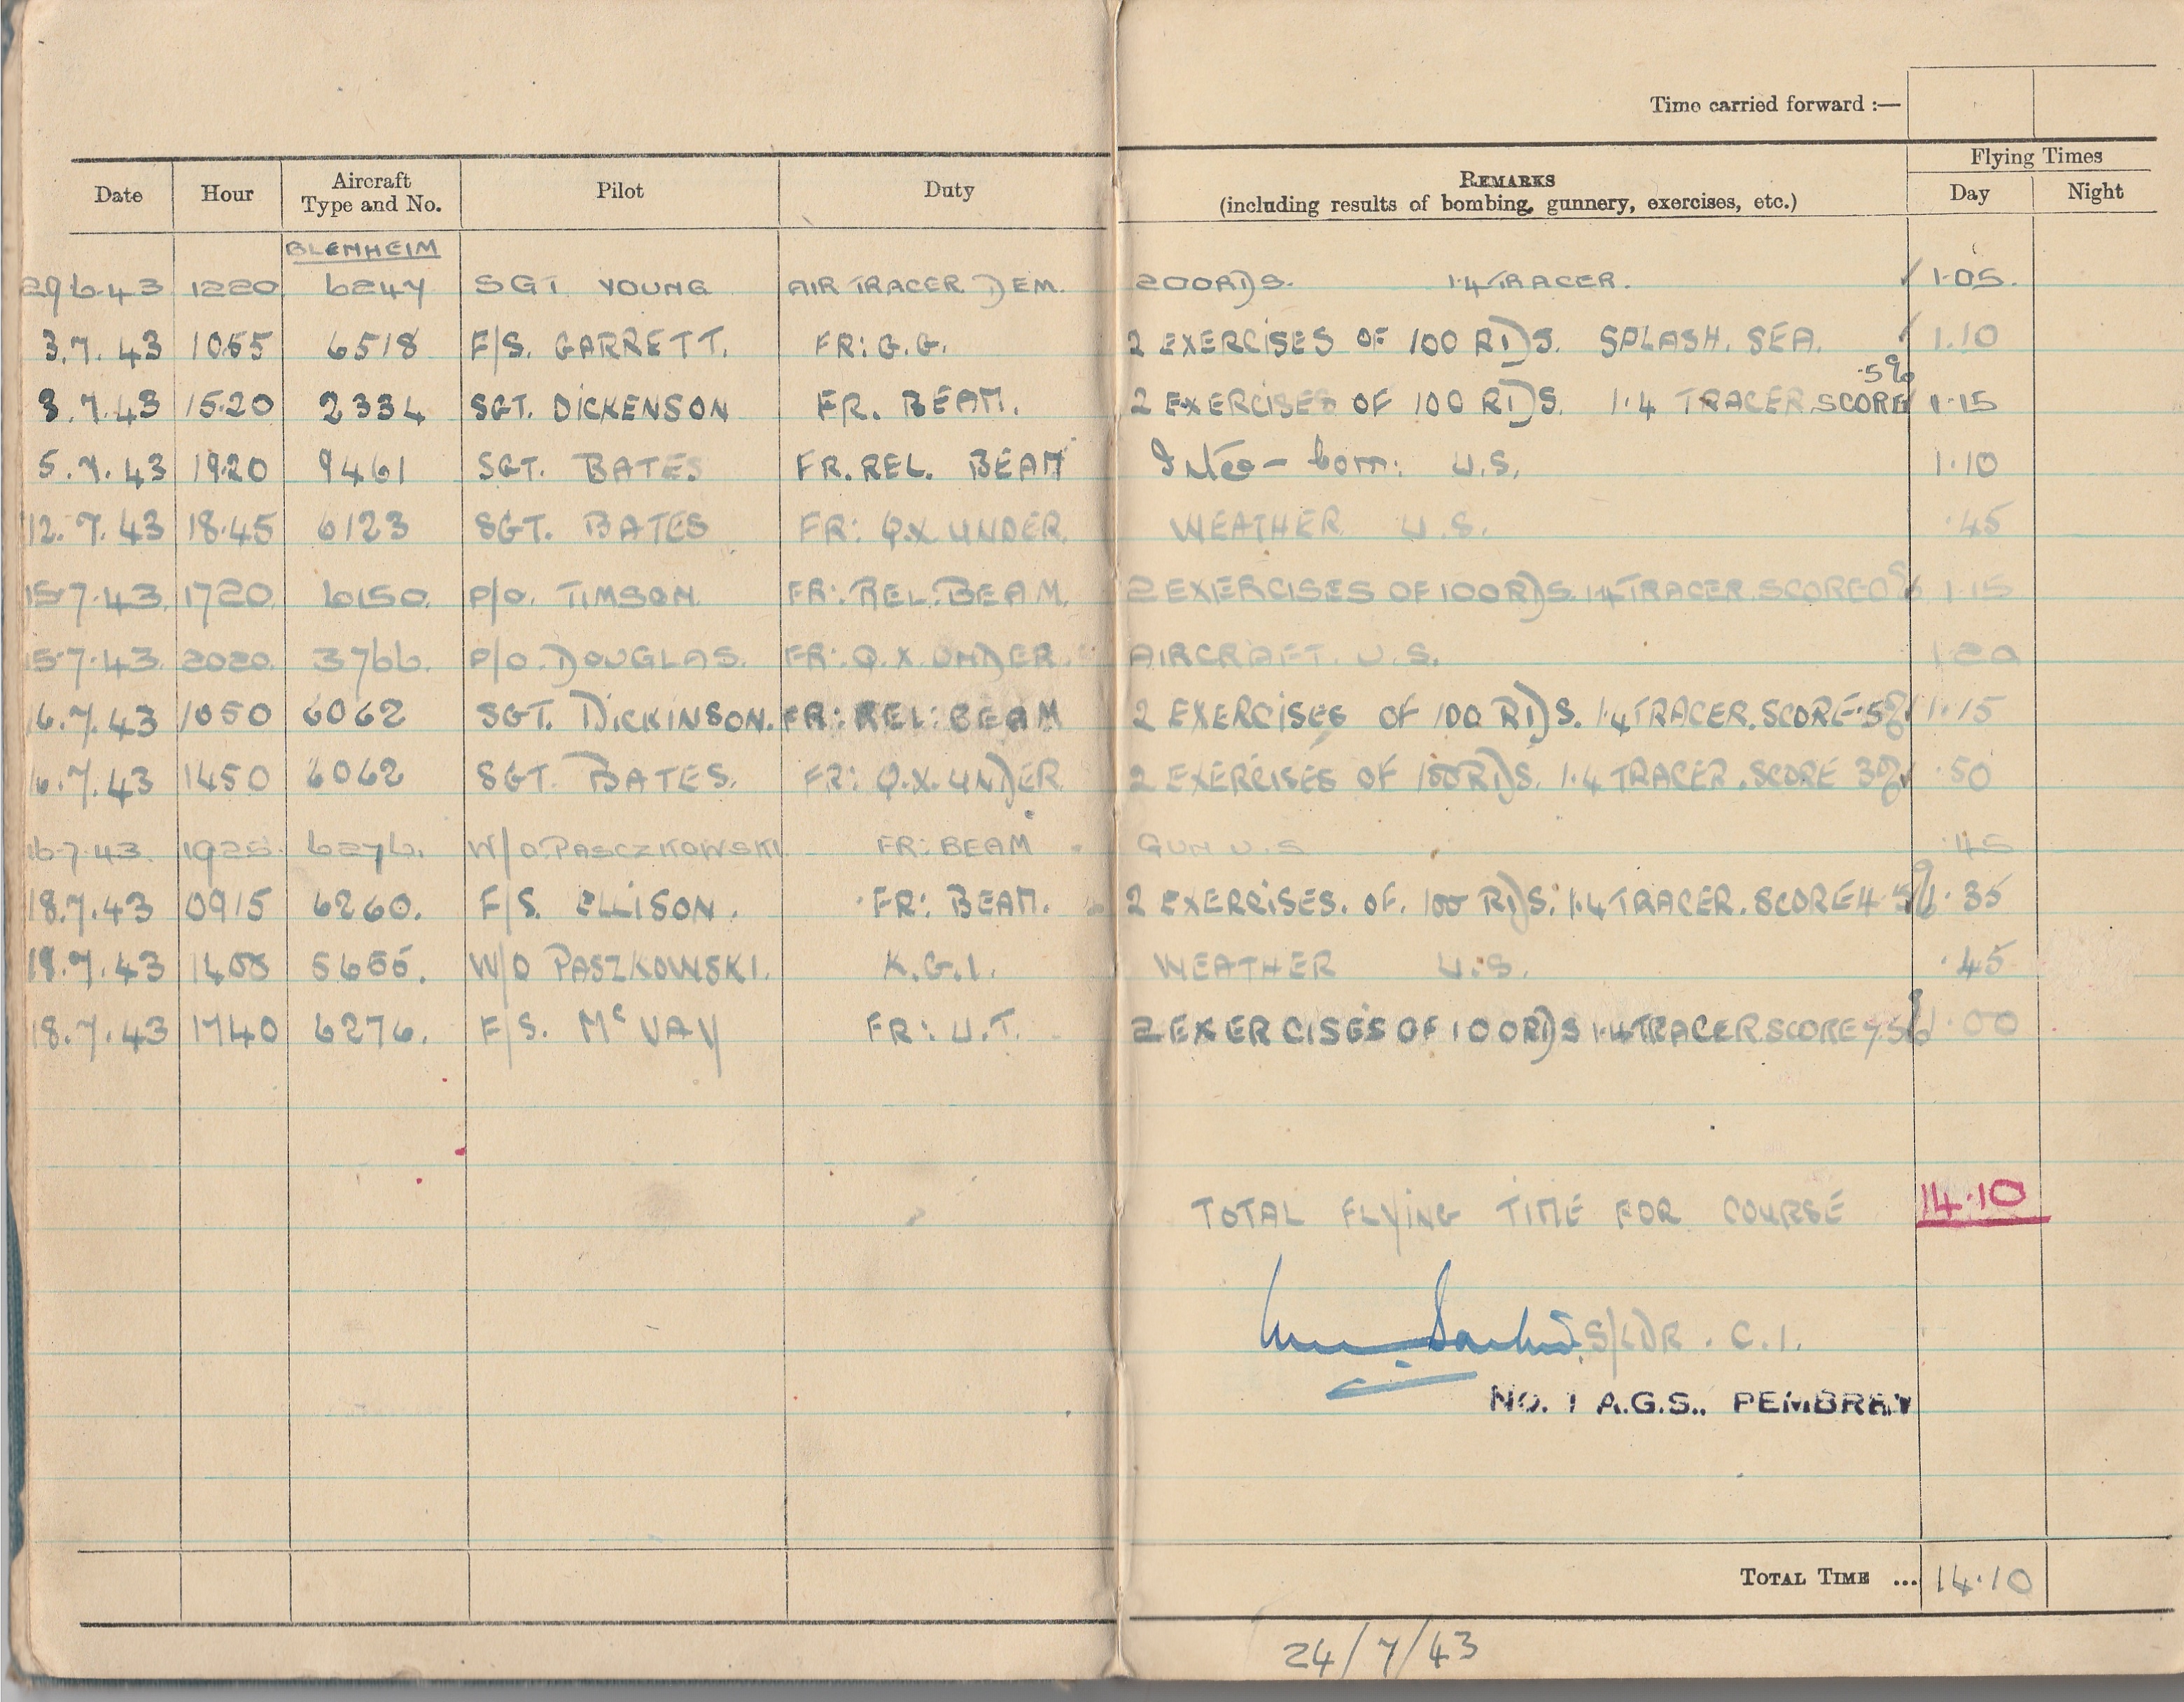 Time carried forward :—
Flying Times
Date Hour Aircraft Type and No. Pilot Duty REMARKS (including results of bombing, gunnery, exercises, etc.) Day Night
BLENHEIM
29.6.43 1220 6247 SGT YOUNG AIR TRACER DEM. 200 RDS. 1·4 TRACER. 1·05.
3.7.43 1055 6518 F/S. GARRETT. FR: G.G. 2 EXERCISES OF 100 RDS. SPLASH. SEA. 1.10
3.7.43 15·20 2334 SGT. DICKENSON FR. BEAM. 2 EXERCISES OF 100 RDS. 1·4 TRACER SCORE ·5% 1·15
5.7.43 19·20 9461 SGT. BATES FR. REL. BEAM U.S. 1·10
12.7.43 18·45 6123 SGT. BATES FR: Q.X. UNDER. WEATHER U.S. ·45
15·7·43. 1720. 6150. P/O. TIMSON. FR: REL: BEAM. 2 EXERCISES OF 100 RDS. 1·4 TRACER. SCORE 0% 1·15
15·7·43. 2020. 3766. P/O. DOUGLAS. FR: Q.X. UNDER. AIRCRAFT. U.S. 1·20
16.7.43 1050 6062 SGT. DICKINSON. FR: REL: BEAM 2 EXERCISES OF 100 RDS. 1·4 TRACER. SCORE ·5% 1·15
16.7.43 1450 6062 SGT. BATES. FR: Q.X. UNDER 2 EXERCISES OF 100 RDS. 1·4 TRACER. SCORE 3% ·50
16·7·43. 1925. 6276. W/O. PASCZKOWSKI FR: BEAM GUN U.S. ·45
18.7.43 0915 6260. F/S. ELLISON. FR: BEAM. 2 EXERCISES. OF. 100 RDS: 1·4 TRACER. SCORE 4·5% ·35
18.7.43 1400 W/O PASZKOWSKI. K.G.1. WEATHER U.S. ·45
18.7.43 1740 6276. F/S. McVAY FR: U.T. 2 EXERCISES OF 100 RDS 1·4 TRACER SCORE 7.5% 1·00
TOTAL FLYING TIME FOR COURSE 14·10
S/LDR. C.I.
NO. 1 A.G.S., PEMBREY
TOTAL TIME ... 14·10
24/7/43